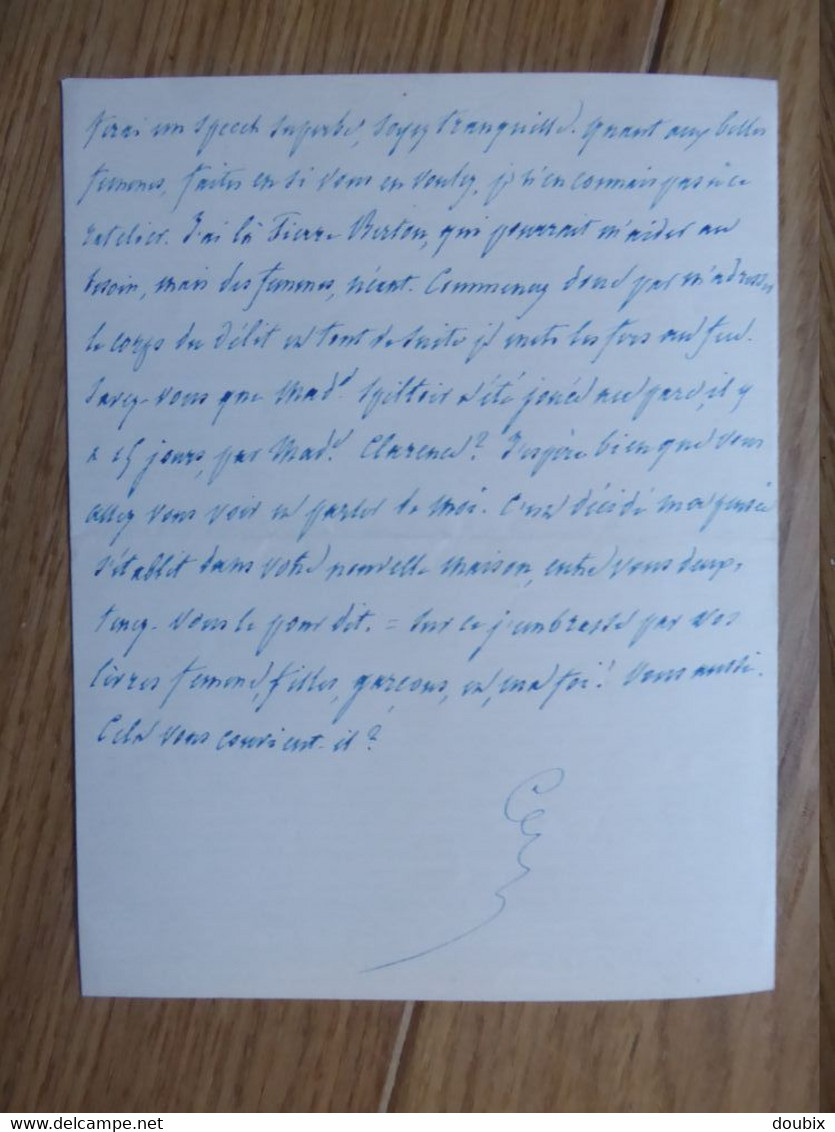 ferai un speech superbe, soyez tranquille. Quant aux belles
femmes, faites en si vous en voulez, je n'en connais pas à ce
ratelier. J'ai là Pierre Berton, qui pourrait m'aider au
besoin, mais des femmes, néant. Commencez donc par m'adresser
le corps du délit et tout de suite je mets les fers au feu.
Savez-vous que Made a été jouée au parc, il y
a 15 jours, par Made Clarence? J'espère bien que vous
allez vous voir et parler de moi. C'est décidé ma pensée
s'établit dans votre nouvelle maison, entre vous deux,
tenez-vous le pour dit. = Sur ce j'embrasse par vos
lèvres femme, filles, garçons, et, ma foi! Vous aussi.
Cela vous convient-il?
delcampe.net
doubix